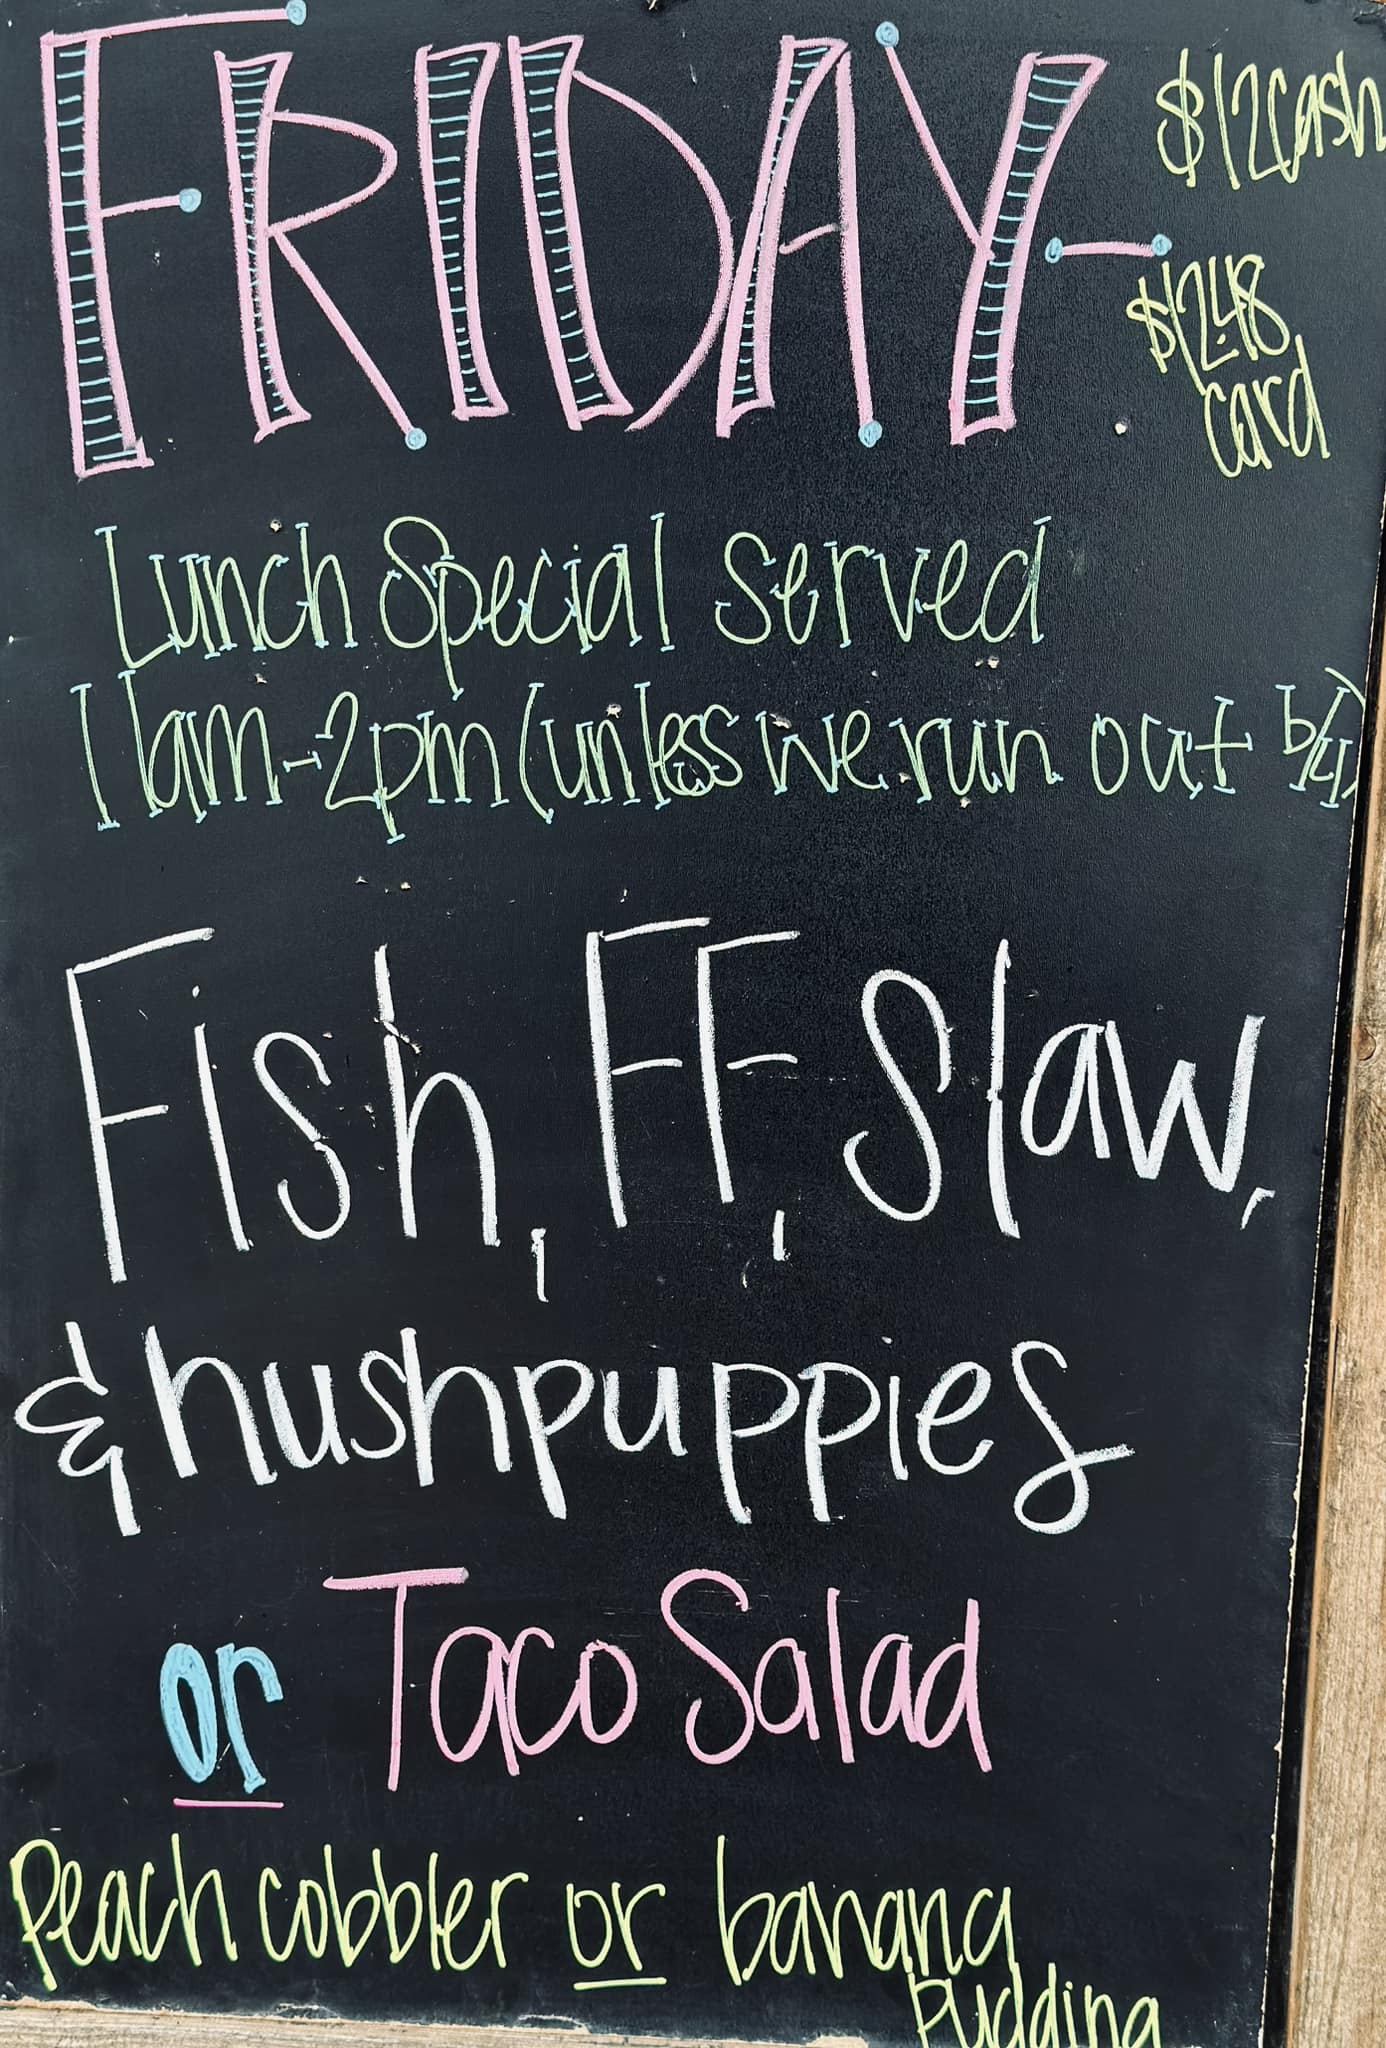 FRIDAY-
$12 cash
$12.48
card
Lunch Special served
11am-2pm (unless we run out b/4)
Fish, FF, Slaw,
& hushpuppies
or Taco Salad
Peach cobbler or banana
pudding